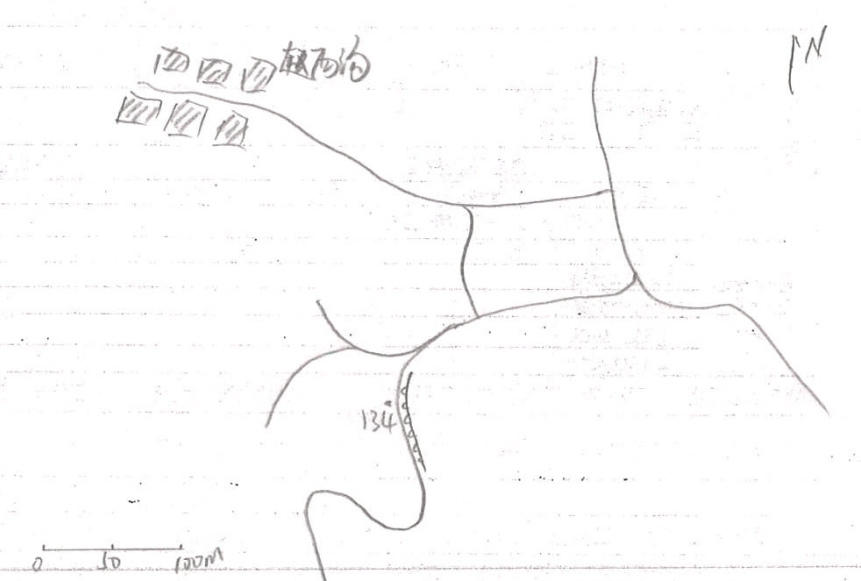 西沟
N
134
0 50 100m